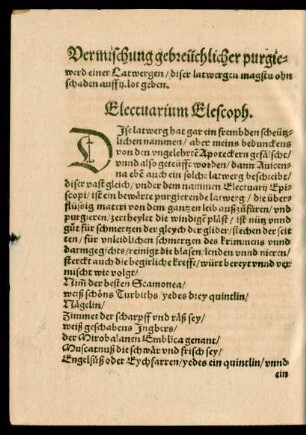 Vermischung gebreüchlicher purgie-
werd einer Latwergen / diser latwergen magstu ohn
schaden auff ij. lot geben.
Electuarium Elescoph.
DIse latwerg hat gar ein frembden scheützlichen
nammen / aber meins bedunckens
von den vngelehrtẽ Apoteckern gefälscht /
vnnd also getaufft worden / dann Auicenna
ehe auch ein solche latwerg beschreibt /
diser vast gleich / vnder dem nammen Electuarij Episcopi /
ist ein bewärte purgierende latwerg / die überflüssig
materi von dem gantzen leib außzüfüren / vnd
purgieren / zertheylet die windige plåst / ist nütz vnnd
güt für schmertzen der gleych der glider / stechen der seiten /
für vnleidlichen schmertzen des krimmens vnnd
darmgegichts / reinigt die blasen / lenden vnnd nieren /
sterckt auch die begirliche kreffe / würt bereyt vnnd vermischt
wie volgt /
Nim̃ der besten Scamonea /
weiß schöns Turbiths / yedes drey quintlin /
Nägelin /
Zimmet der scharpff vnd räß sey /
weiß geschabens Ingbers /
der Mirobalanen Emblica genant /
Muscatnuß die schwär vnd frisch sey /
Engelsüß oder Eychfarren / yedes ein quintlin / vnnd
ein